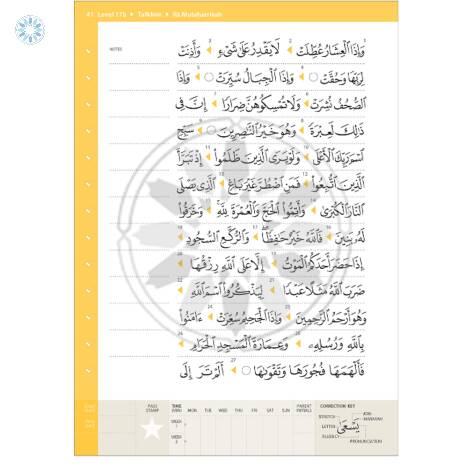 41: Level 17b ▸ Tafkhīm ▸ Rā Mutaḥarrikah
NOTES
وَإِذَا ٱلْعِشَارُ عُطِّلَتْ لَا يَقْدِرُ عَلَىٰ شَىْءٍ وَأَذِنَتْ
لِرَبِّهَا وَحُقَّتْ وَإِذَا ٱلْجِبَالُ سُيِّرَتْ وَإِذَا
ٱلصُّحُفُ نُشِرَتْ وَلَا تُمْسِكُوهُنَّ ضِرَارًا إِنَّ فِى
ذَٰلِكَ لَعِبْرَةً وَهُوَ خَيْرُ ٱلنَّٰصِرِينَ سَبِّحِ
ٱسْمَ رَبِّكَ ٱلْأَعْلَى وَلَوْ يَرَى ٱلَّذِينَ ظَلَمُوٓا۟ إِذْ تَبَرَّأَ
ٱلَّذِينَ ٱتُّبِعُوا۟ فَمَنِ ٱضْطُرَّ غَيْرَ بَاغٍ ٱلَّذِى يَصْلَى
ٱلنَّارَ ٱلْكُبْرَىٰ وَأَتِمُّوا۟ ٱلْحَجَّ وَٱلْعُمْرَةَ لِلَّهِ وَخَرَقُوا۟
لَهُۥ بَنِينَ فَٱللَّهُ خَيْرٌ حَٰفِظًا وَٱلرُّكَّعِ ٱلسُّجُودِ
إِذَا حَضَرَ أَحَدَكُمُ ٱلْمَوْتُ إِلَّا عَلَى ٱللَّهِ رِزْقُهَا
ضَرَبَ ٱللَّهُ مَثَلًا عَبْدًا لِّيَذْكُرُوا۟ ٱسْمَ ٱللَّهِ
وَهُوَ أَرْحَمُ ٱلرَّٰحِمِينَ وَإِذَا ٱلْجَحِيمُ سُعِّرَتْ ءَامَنُوا۟
بِٱللَّهِ وَرُسُلِهِۦ وَعِمَارَةَ ٱلْمَسْجِدِ ٱلْحَرَامِ
فَأَلْهَمَهَا فُجُورَهَا وَتَقْوَىٰهَا أَلَمْ تَرَ إِلَى
PASS STAMP TIME (MIN) MON TUE WED THU FRI SAT SUN PARENT INITIALS CORRECTION KEY
WEEK 1
WEEK 2
STRETCH LETTER FLUENCY يَسْعَىٰ PRONUNCIATION